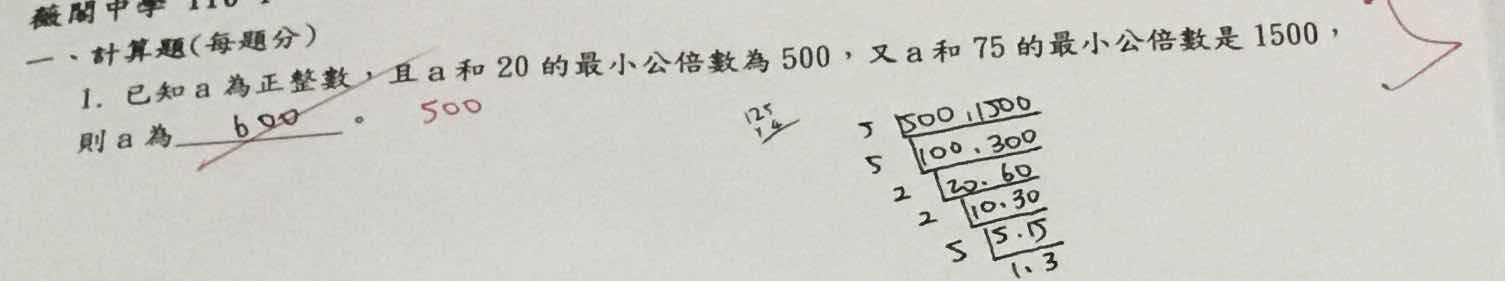 薇閣中學 110
一、計算題(每題分)
1. 已知 a 為正整數，且 a 和 20 的最小公倍數為 500，又 a 和 75 的最小公倍數是 1500，
則 a 為 600 。 500
125
× 4
5 500,1500
5 100.300
2 20.60
2 10.30
5 5.15
1.3